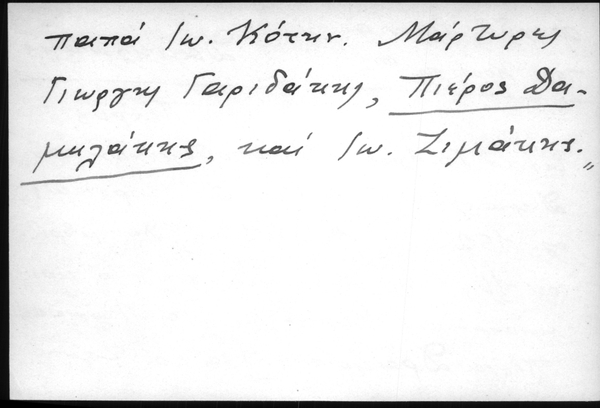 παπά Ιω. Κότσην. Μάρτυρες
Γιώργης Γαριδάκης, Πιέρος Δα-
μηλάκης, καί Ιω. Ζιμάκης.„